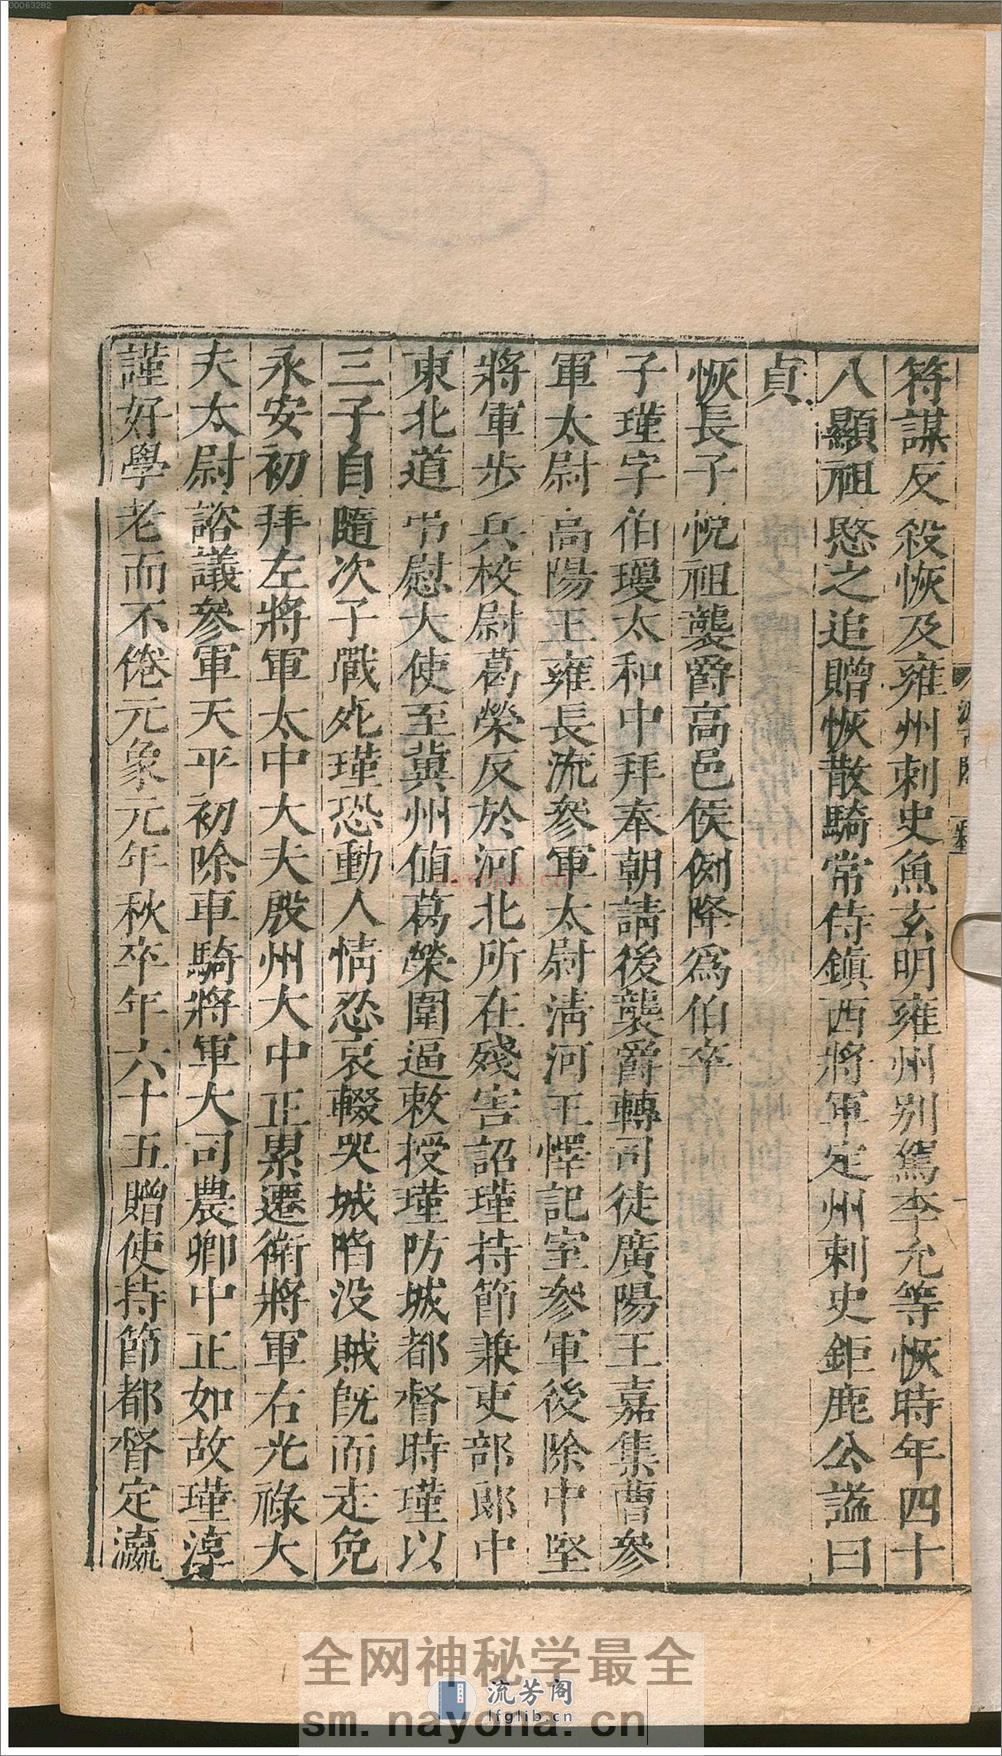 符謀反殺恢及雍州刺史魚玄明雍州別駕李允等恢時年四十
八顯祖愍之追贈恢散騎常侍鎭西將軍定州刺史鉅鹿公諡曰
貞
恢長子悅祖襲爵高邑侯例降爲伯卒
子瑾字伯瓊太和中拜奉朝請後襲爵轉司徒廣陽王嘉集曹參
軍太尉高陽王雍長流參軍太尉淸河王懌記室參軍後除中堅
將軍步兵校尉葛榮反於河北所在殘害詔瑾持節兼吏部郎中
東北道弔慰大使至冀州値葛榮圍逼敕授瑾防城都督時瑾以
三子自隨次子戰死瑾恐動人情忍哀輟哭城陷沒賊旣而走免
永安初拜左將軍太中大夫殷州大中正累遷衛將軍右光祿大
夫太尉諮議參軍天平初除車騎將軍大司農卿中正如故瑾淳
謹好學老而不倦元象元年秋卒年六十五贈使持節都督定瀛
00063282
nayona.cn
全网神秘学最全
流芳阁
lfglib.cn
sm.nayona.cn